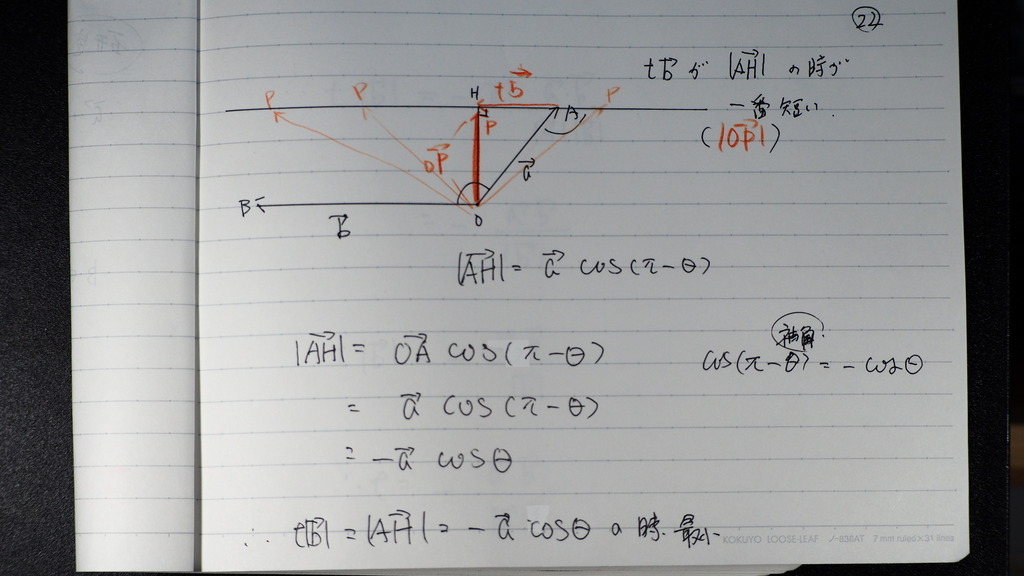 22
tb⃗ が |AH⃗| の時が
一番短い.
(|OP⃗|)
P P H tb⃗ A P
P
OP⃗
a⃗
B O
b⃗
|AH⃗| = a⃗ cos(π-θ)
|AH⃗| = OA⃗ cos(π-θ)
補角
cos(π-θ) = - cosθ
= a⃗ cos(π-θ)
= -a⃗ cosθ
∴ t|b⃗| = |AH⃗| = - a⃗ cosθ の時. 最小
KOKUYO LOOSE-LEAF ノ-836AT 7 mm ruled×31 lines